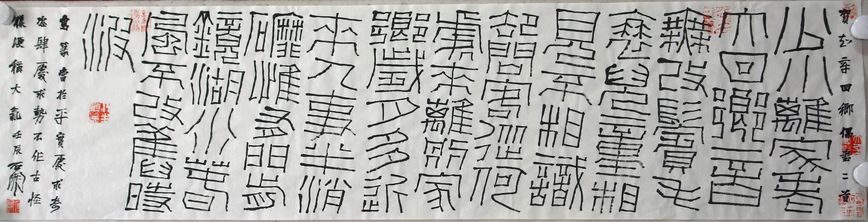 賀知章回鄉偶書二首
少小離家老
大回鄉音
難改鬢毛
衰兒童相
見不相識
卻問客從何
處來離別家
鄉歲月多近
來人事半消
磨惟有門前
鏡湖水春
風不改舊時
波
篆書於平實處求奇
處求勢不作古怪
大氣壬辰